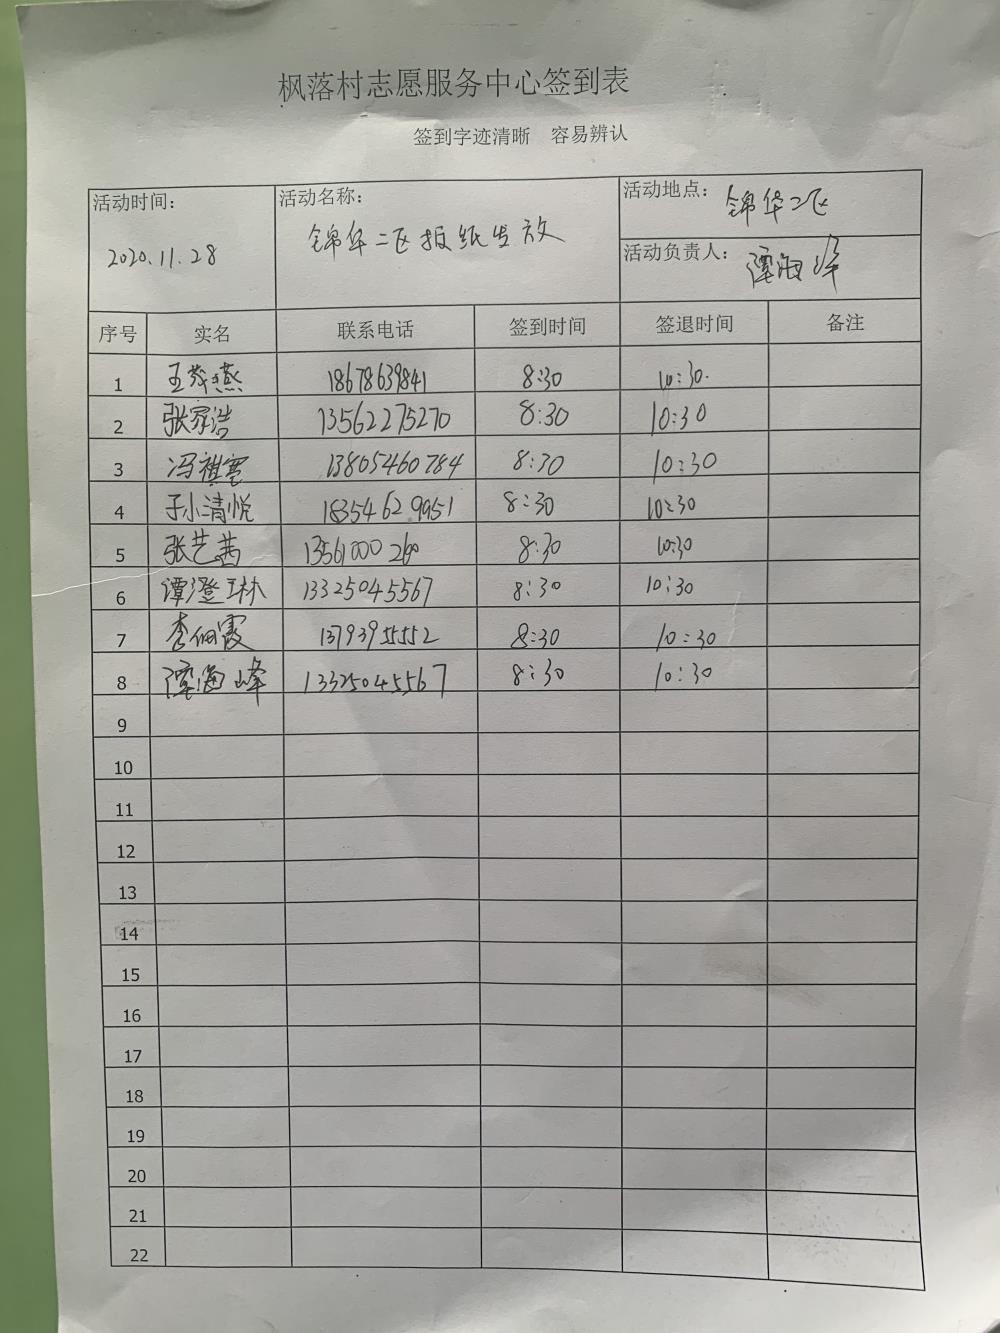 枫落村志愿服务中心签到表
签到字迹清晰 容易辨认
活动时间： 活动名称： 活动地点：锦华二区
2020.11.28 锦华二区报纸发放 活动负责人：谭海峰
序号 实名 联系电话 签到时间 签退时间 备注
1 王茂燕 18678639841 8:30 10:30
2 张家浩 13562275270 8:30 10:30
3 冯祺 13805460784 8:30 10:30
4 于小清悦 18354629951 8:30 10:30
5 张艺茜 13561000260 8:30 10:30
6 谭澄琳 13325045567 8:30 10:30
7 李佃霞 13793955552 8:30 10:30
8 谭海峰 13325045567 8:30 10:30
9
10
11
12
13
14
15
16
17
18
19
20
21
22